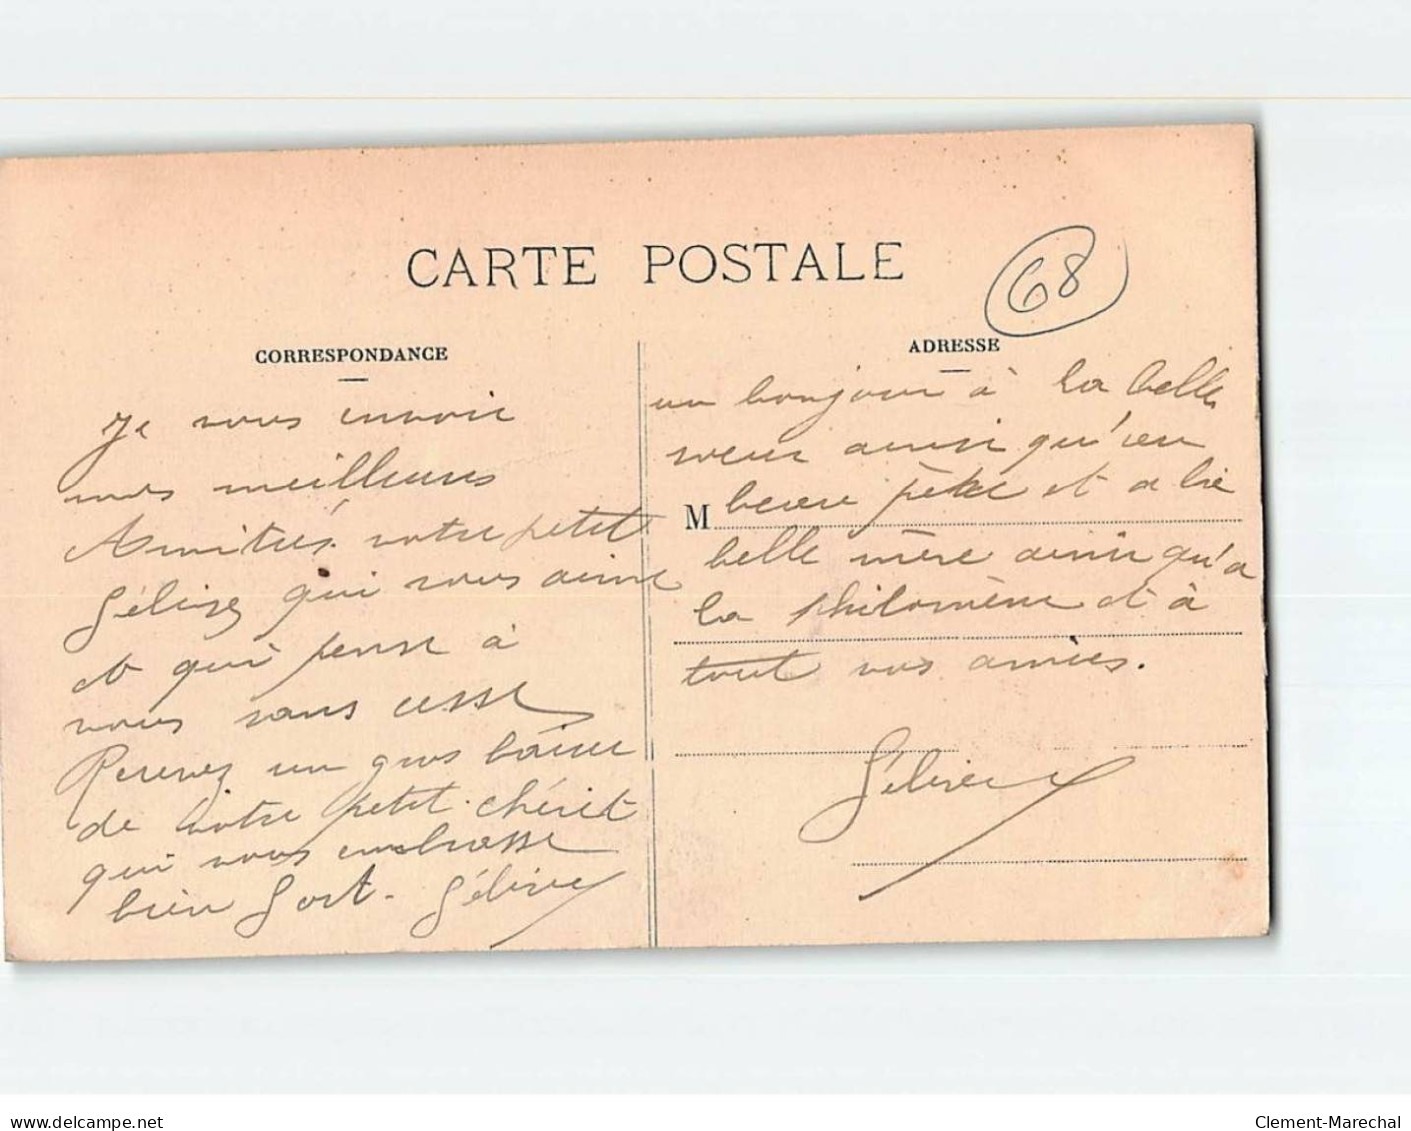 CARTE POSTALE
68
CORRESPONDANCE
Je vous envoie
mes meilleures
Amitiés. votre petit
Félixe qui vous aime
et qui pense à
vous sans cesse
Recevez un gros baiser
de votre petit chérit
qui vous embrasse
bien fort. Félixe
ADRESSE
un bonjour à la belle
soeur ainsi qu'au
M beau père et a la
belle mère ainsi qu'a
la philomène et à
tout vos amies.
Félixe
www.delcampe.net
Clement-Marechal